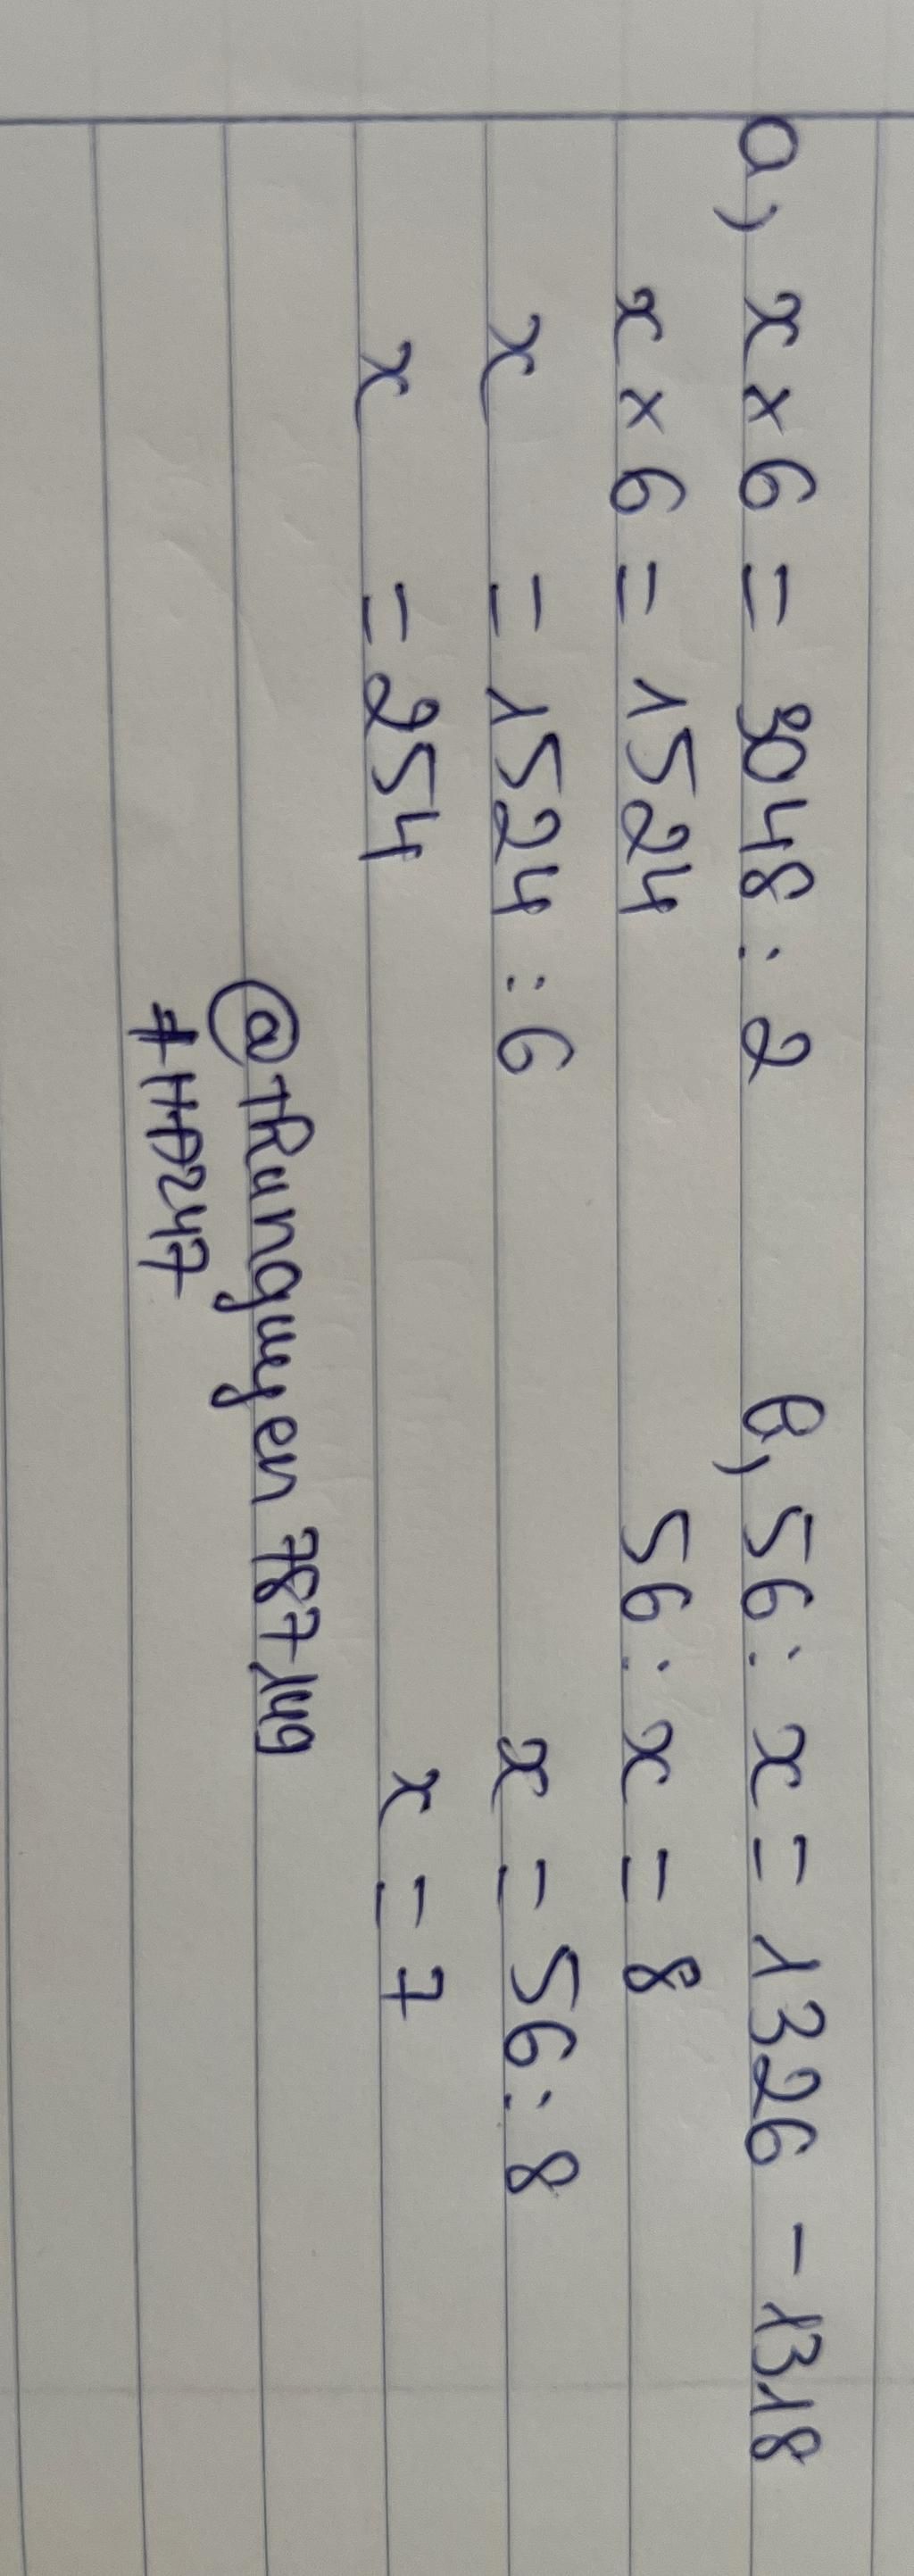 a, x × 6 = 3048 : 2
x × 6 = 1524
x = 1524 : 6
x = 254
b, 56 : x = 1326 - 1318
56 : x = 8
x = 56 : 8
x = 7
@Thunguyen 787149
#HD247